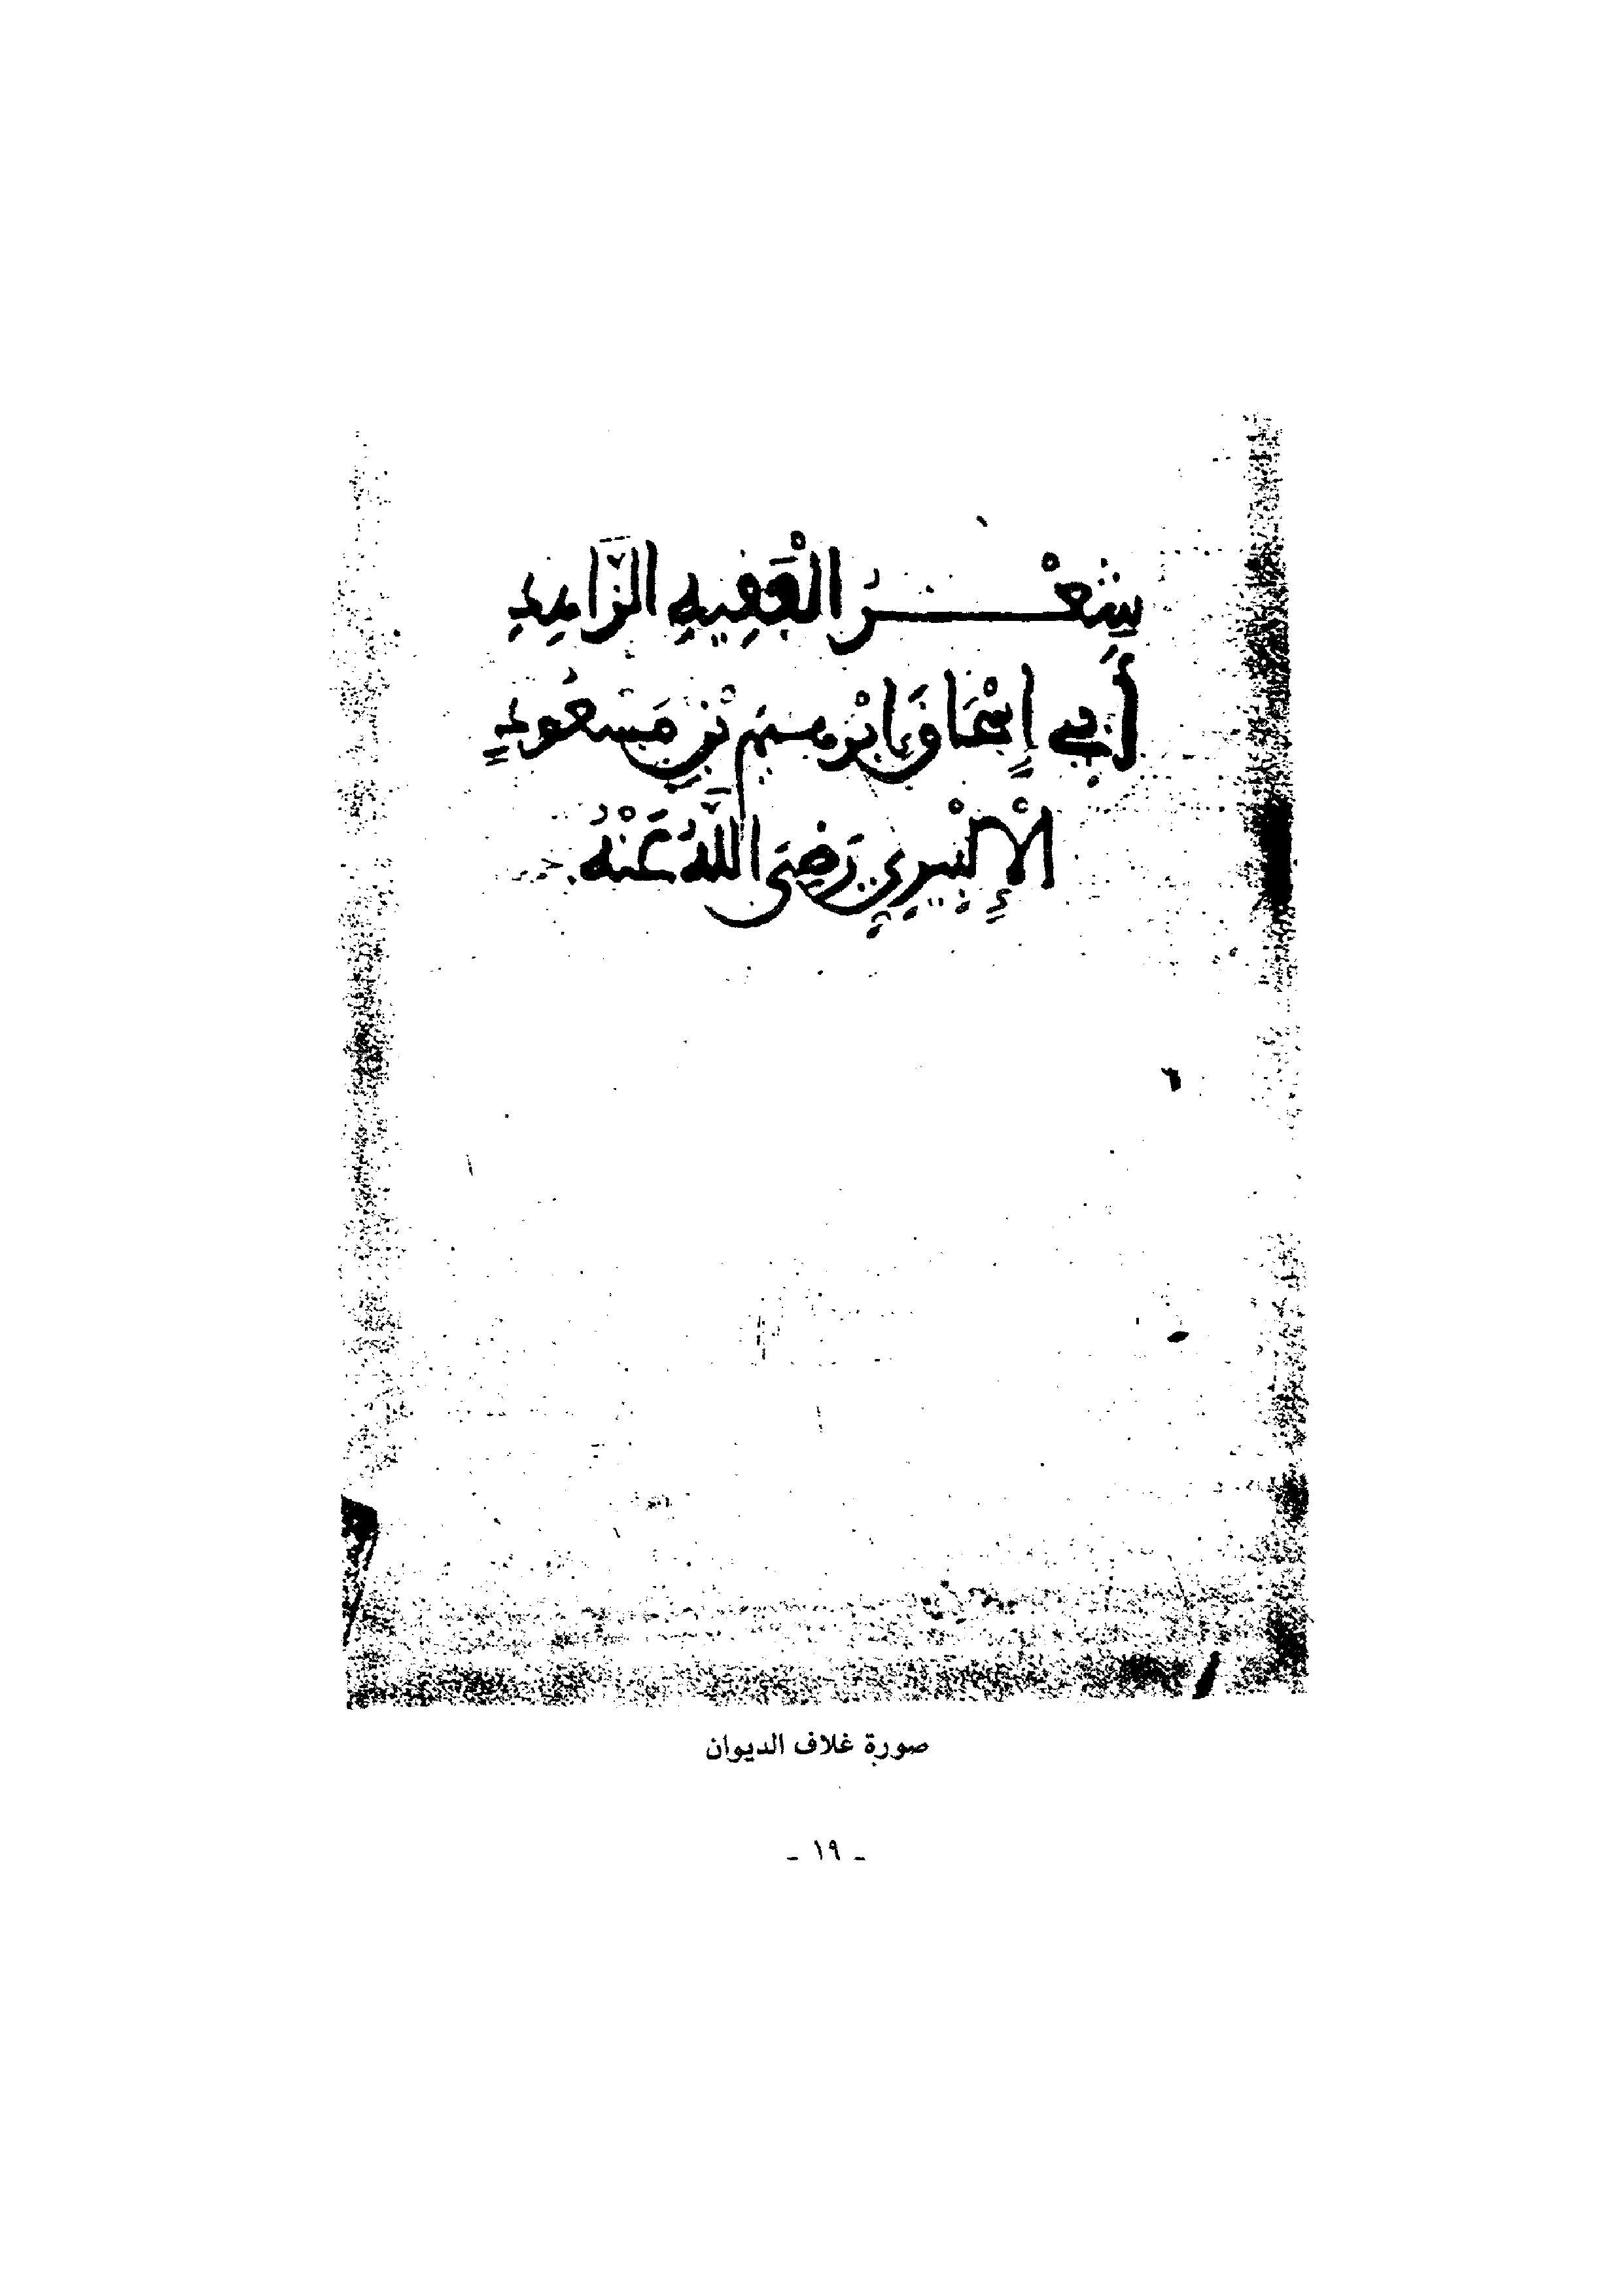 شِعْرُ الْفَقِيهِ الزَّاهِدِ
أَبِي إِسْحَاق إِبْرهِيمَ بْنِ مَسْعُودٍ
الْإِلْبِيرِيِّ رَضِيَ اللَّهُ عَنْهُ
صورة غلاف الديوان
- ١٩ -